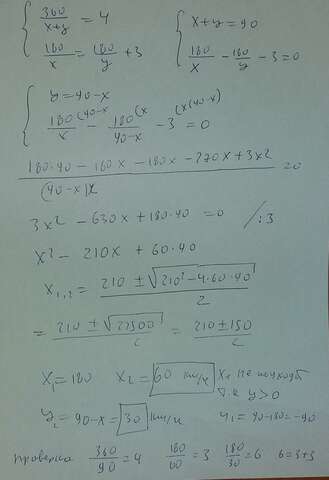 { 360/(x+y) = 4    { x+y = 90
{ 180/x = 180/y + 3    { 180/x - 180/y - 3 = 0
{ y = 90-x
{ 180/x (90-x - 180/(90-x) (x - 3 (x(90-x) = 0
(180·90 - 180x - 180x - 270x + 3x²)/((90-x)x) = 0
3x² - 630x + 180·90 = 0 /:3
x² - 210x + 60·90
x₁,₂ = (210 ± √(210² - 4·60·90))/2
= (210 ± √22500)/2 = (210 ± 150)/2
x₁ = 180 x₂ = 60 км/ч x₁ не подходит
т.к y>0
y₂ = 90-x = 30 км/ч y₁ = 90-180 = -90
проверка 360/90 = 4 180/60 = 3 180/30 = 6 6=3+3